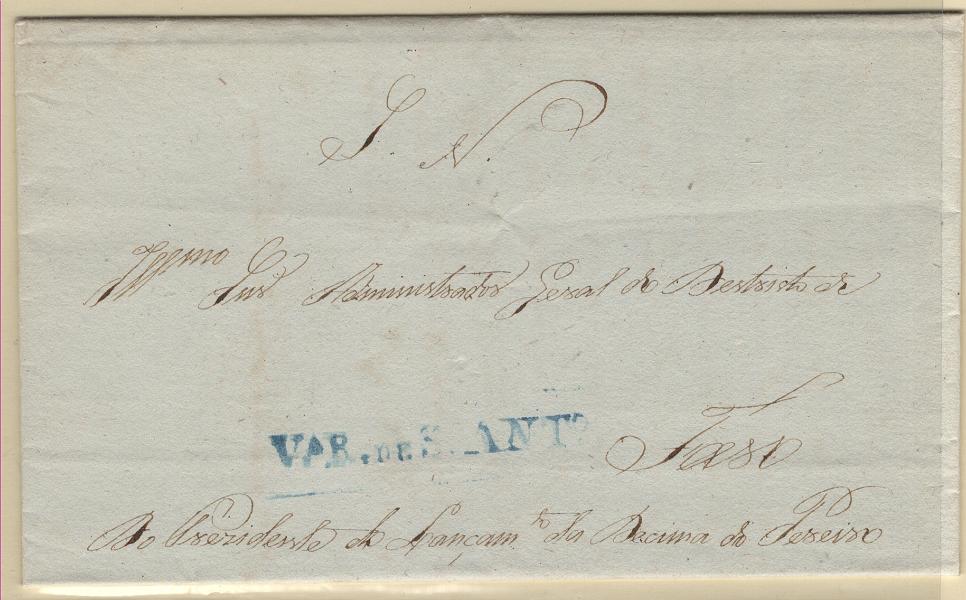 S. N.
Illmo Snr Administrador Geral do Destricto de
Faro
V.A R. DE S. ANTO
Do Prezidente do Lançam.to da Decima do Pereiro